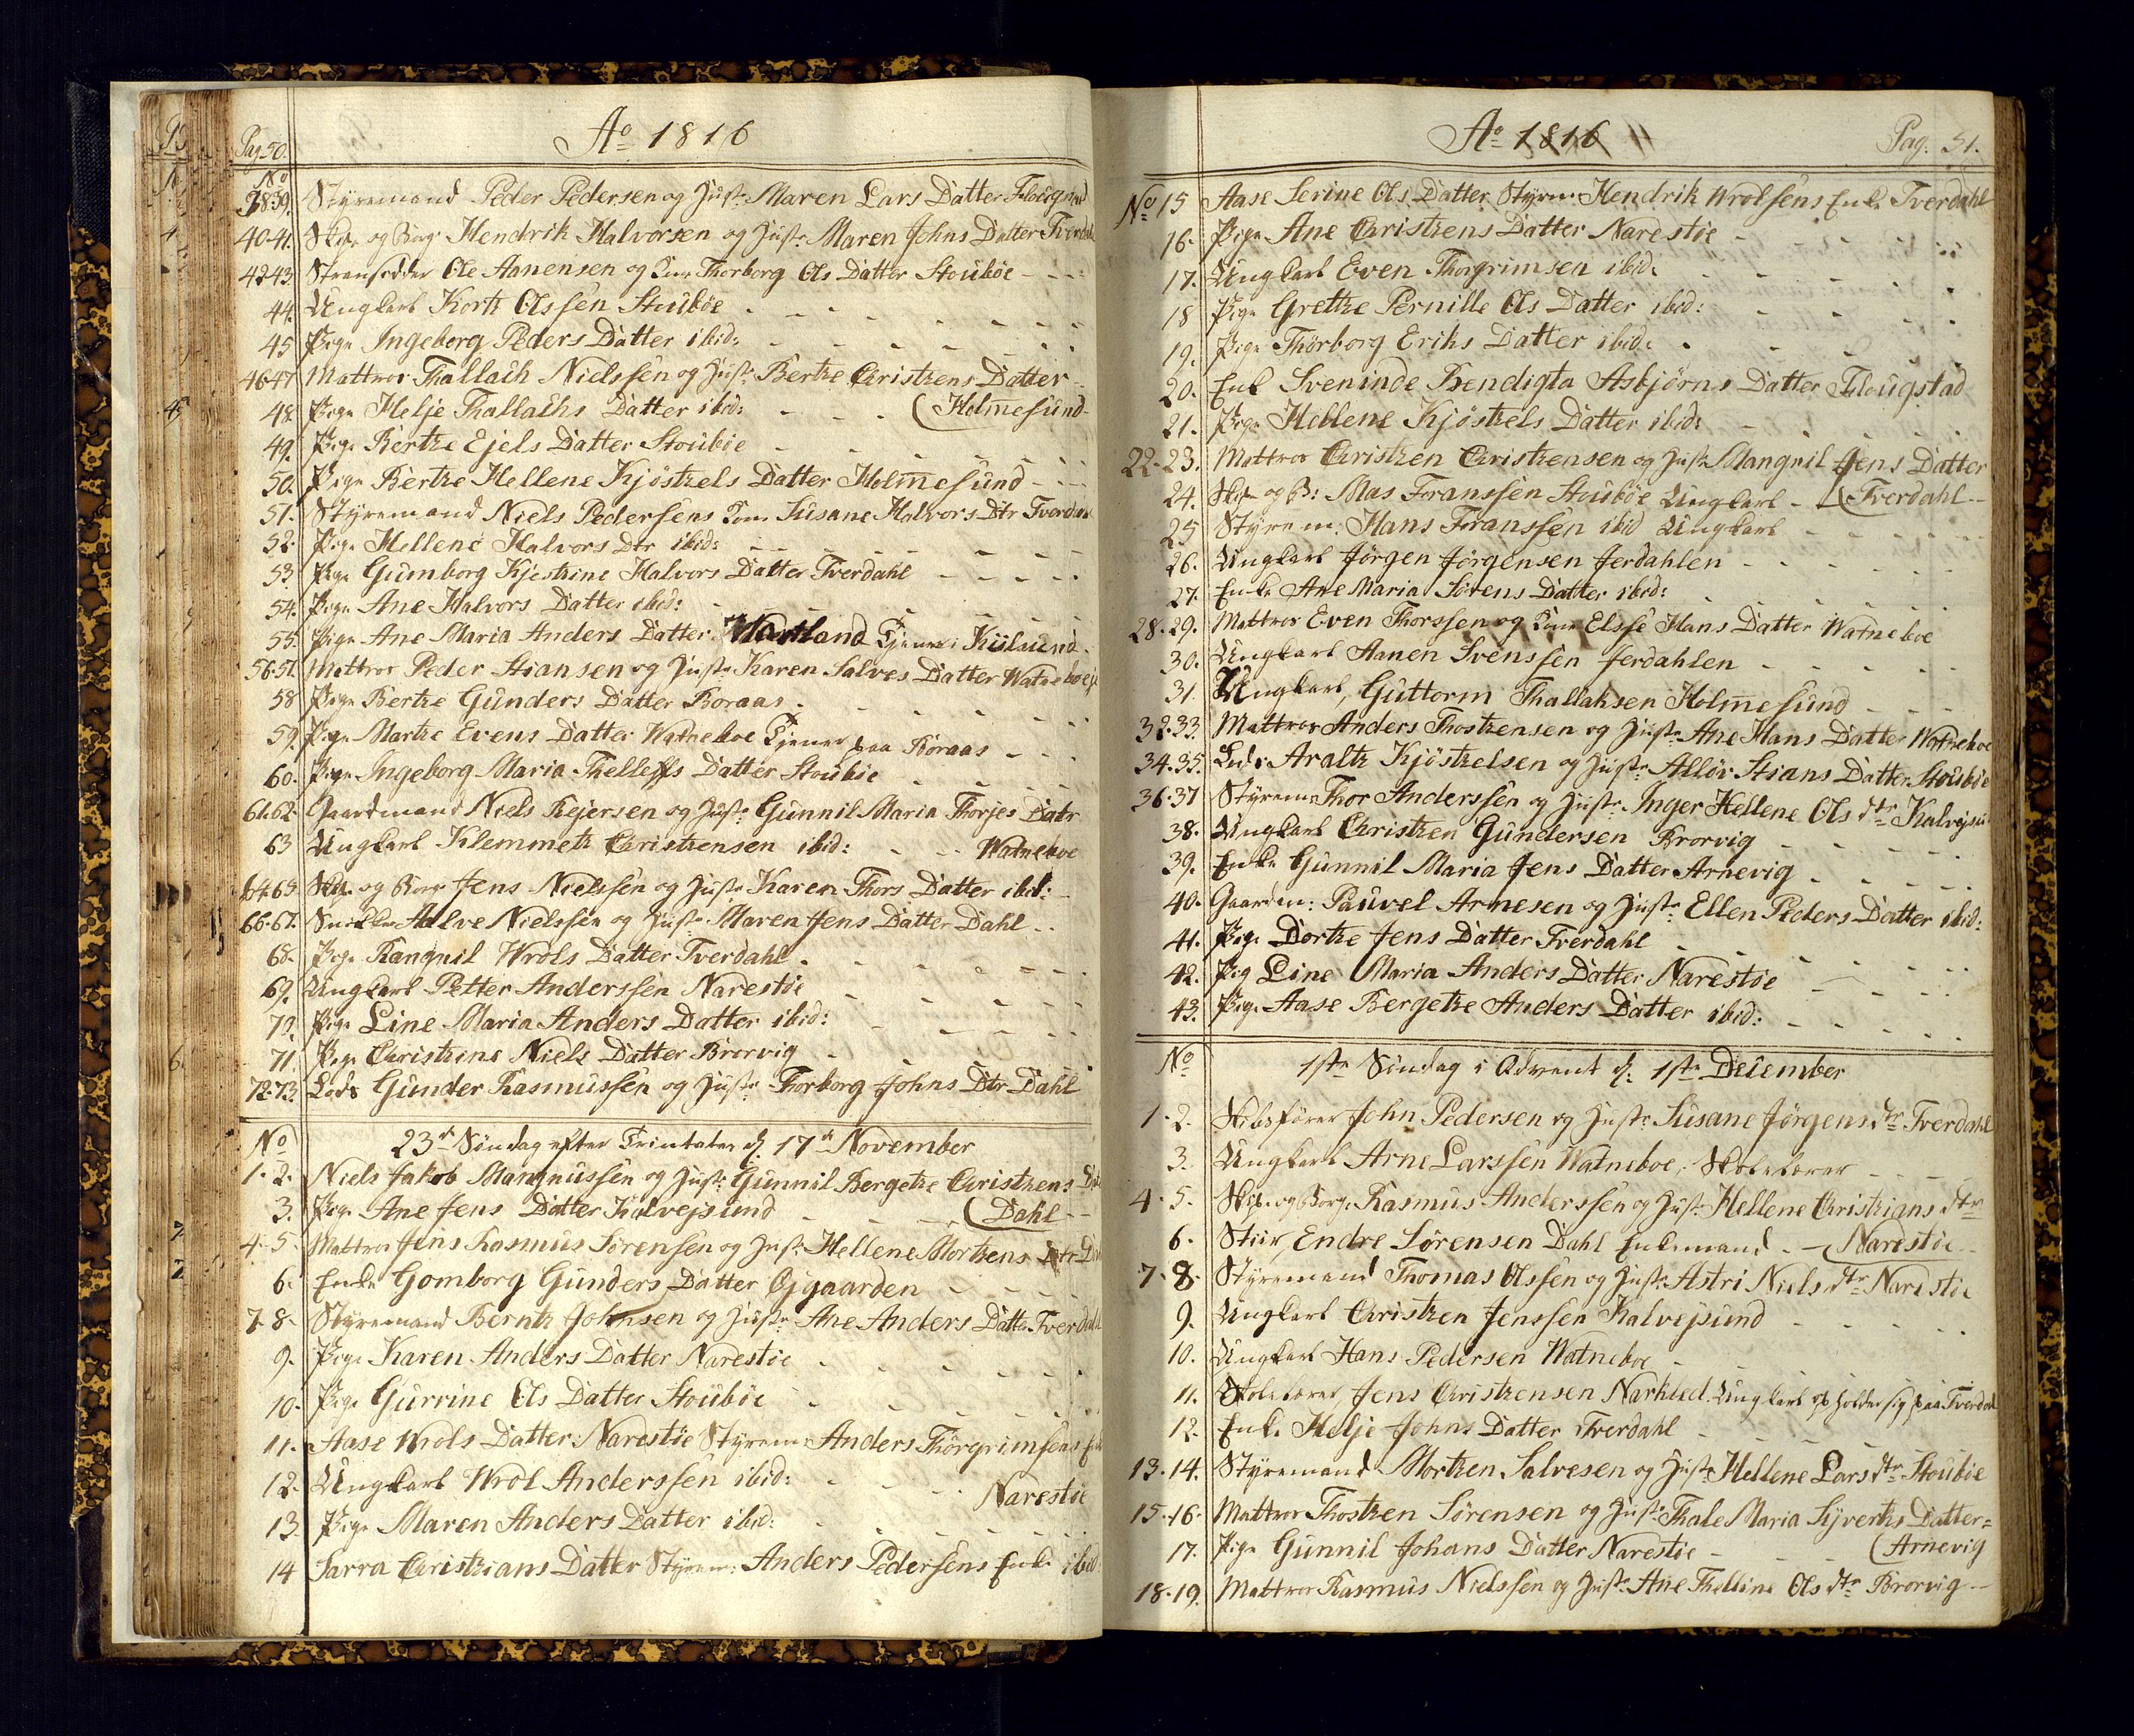 Pag. 50.
Ao 1816
No
38.39. Styremand Peder Pedersen og Hust: Maren Lars Datter Flougstad
40.41. Skip: og Borg: Hendrik Halvorsen og Hust: Maren Johns Datter Tverdahl
42.43. Stransidder Ole Aanensen og Kone Thorborg Ols Datter Stouböe
44. Ungkarl Korth Olssen Stouböe
45 Pige Ingeborg Peders Datter ibid:
46.47 Mattros Thallach Nielssen og Hust: Berthe Christhens Datter
48. Pige Helje Thallachs Datter ibid: (Holmesund
49. Pige Berthe Ejels Datter Stouböe
50. Pige Berthe Hellene Kjösthels Datter Holmesund
51. Styremand Niels Pedersens Kone Susane Halvors Dtr Tverdahl
52. Pige Hellene Halvors Dtr ibid:
53. Pige Gumborg Kjestine Halvors Datter Tverdahl
54. Pige Ane Halvors Datter ibid:
55. Pige Ane Maria Anders Datter Tjener: Kiilsund
56.57. Mattros Peder Stiansen og Hust: Karen Salves Datter Watneboe
58 Pige Berthe Gunders Datter Boraas
59. Pige Marthe Evens Datter Watneboe Tjener paa Boraas
60. Pige Ingeborg Maria Thelleffs Datter Stouböe
61.62. Gaardmand Niels Rejersen og Hust: Gunnil Maria Thorjes Datr
63 Ungkarl Klemmeth Christhensen ibid: Watneboe
64.65 Skip: og Borg: Jens Nielssen og Hust: Karen Thors Datter ibid:
66.67. Snidker Aalve Nielssen og Hust: Maren Jens Datter Dahl
68. Pige Rangnil Wrols Datter Tverdahl
69. Ungkarl Petter Anderssen Narestöe
70. Pige Line Maria Anders Datter ibid:
71. Pige Christhine Niels Datter Brorvig
72.73. Lods Gunder Rasmussen og Hust: Thorborg Johns Dtr Dahl
No 23de Söndag efter Trinitatis d: 17de November
1.2. Niels Jakob Mangnussen og Hust: Gunnil Bergethe Christhens D
3. Pige Ane Jens Datter Kalvejsund (Dahl
4.5. Mattros Jens Rasmus Sörensen og Hust: Hellene Morthens Dtr
6. Enke Gomborg Gunders Datter Ojgaarden
7.8. Styremand Bernth Johnsen og Hust: Ane Anders Datter Tverdahl
9. Pige Karen Anders Datter Narestöe
10. Pige Gurrine Ols Datter Stouböe
11. Aase Wrols Datter Narestöe Styrem: Anders Thorgrimsens
12. Ungkarl Wrol Anderssen ibid: Narestöe
13. Pige Maren Anders Datter ibid:
14 Sarra Christhians Datter Styrem: Anders Pedersens Enke ibid
Ao 1816
Pag: 51.
No 15 Aase Serine Ols Datter Styrm: Hendrik Wrolsens Enke Tverdahl
16. Pige Ane Christhens Datter Narestöe
17. Ungkarl Even Thorgrimsen ibid:
18 Pige Grethe Pernille Ols Datter ibid:
19. Pige Thorborg Eriks Datter ibid:
20. Enk Sveninde Bendigta Asbjörns Datter Flougstad
21. Pige Hellene Kjösthels Datter ibid:
22.23. Mattros Christhen Christhensen og Hust: Mangnil Jens Datter
24. Skip: og B: Mas Foranssen Stouböe Ungkarl (Tverdahl
25 Styrem: Hans Foranssen ibid Ungkarl
26. Ungkarl Jörgen Jörgensen Jerdahlen
27. Enke Ane Maria Sörens Datter ibid:
28.29. Mattros Even Thorssen og Kone Elsse Hans Datter Watneboe
30. Ungkarl Aanen Svenssen Jerdahlen
31. Ungkarl Guttorm Thallaksen Holmesund
32.33. Mattros Anders Thosthensen og Hust: Ane Hans Datter Watneboe
34.35. Lods Aralth Kjösthelsen og Hust: Allöv Stians Datter Stouböe
36.37 Styrem: Thor Anderssen og Hust: Inger Hellene Ols dtr Kalvejsu
38. Ungkarl Christhen Gundersen Brorvig
39. Enke Gunnil Maria Jens Datter Arnevig
40. Gaardm: Pauvel Arnesen og Hust: Ellen Peders Datter ibid:
41. Pige Dorthe Jens Datter Tverdahl
42. Pig Line Maria Anders Datter Narestöe
43. Pige Aase Bergethe Anders Datter ibid:
No 1ste Söndag i Advent d: 1ste December
1.2. Skibsförer John Pedersen og Hust: Susane Jörgens dtr Tverdahl
3. Ungkarl Arne Larssen Watneboe, Skolelærer
4.5. Skip: og Borg: Rasmus Anderssen og Hust: Hellene Christhians dtr
6. Stuir, Endre Sörensen Dahl Enkemand (Narestöe
7.8. Styremand Thomas Olssen og Hust: Astri Niels dtr Narestöe
9. Ungkarl Christhen Jenssen Kalvejsund
10. Ungkarl Hans Pedersen Watneboe
11. Skolelærer, Jens Christhensen Narkled. Ungkarl op holder sig paa Tverdahl
12. Enke Helje Johns Datter Tverdahl
13.14. Styremand Morthen Salvesen og Hust: Hellene Lars dtr Stouböe
15.16. Mattros Thosthen Sörensen og Hust: Thale Maria Syverths Datter=
17. Pige Gunnil Johans Datter Narestöe (Arnevig
18.19. Mattros Rasmus Nielssen og Hust: Ane Thelline Ols dtr Brorvig